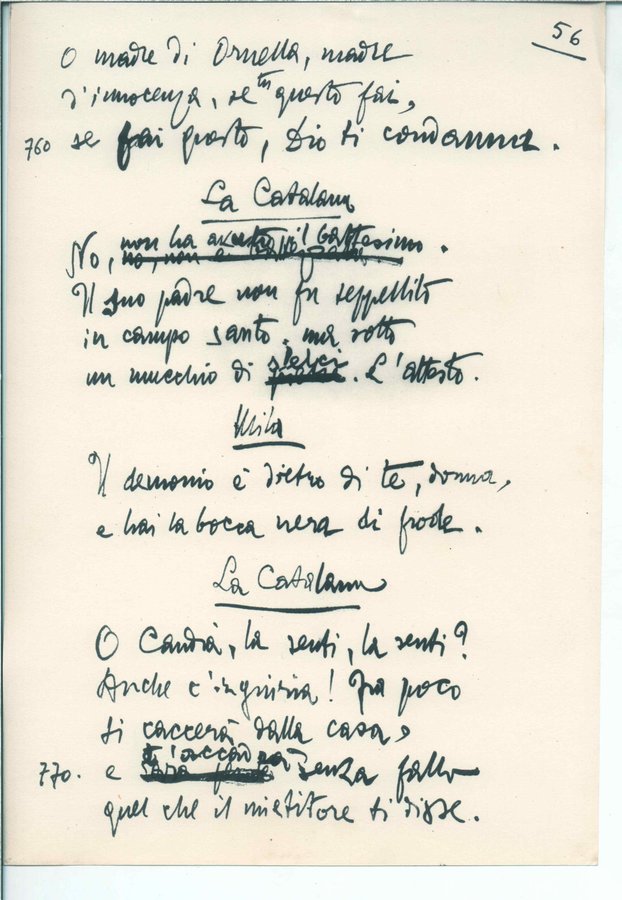 56
O madre di Ornella, madre
d'innocenza, se tu questo fai,
760 se fai questo, Dio ti condanna.
La Catalana
No, non ha avuto il battesimo.
Il suo padre non fu seppellito
in campo santo. ma sotto
un mucchio di selci. L'attesto.
Mila
Il demonio è dietro di te, donna,
e hai la bocca nera di frode.
La Catalana
O Candia, la senti, la senti?
Anche c'ingiuria! Fra poco
ti caccerà dalla casa,
770. e t'accadrà senza fallo
quel che il mietitore ti disse.